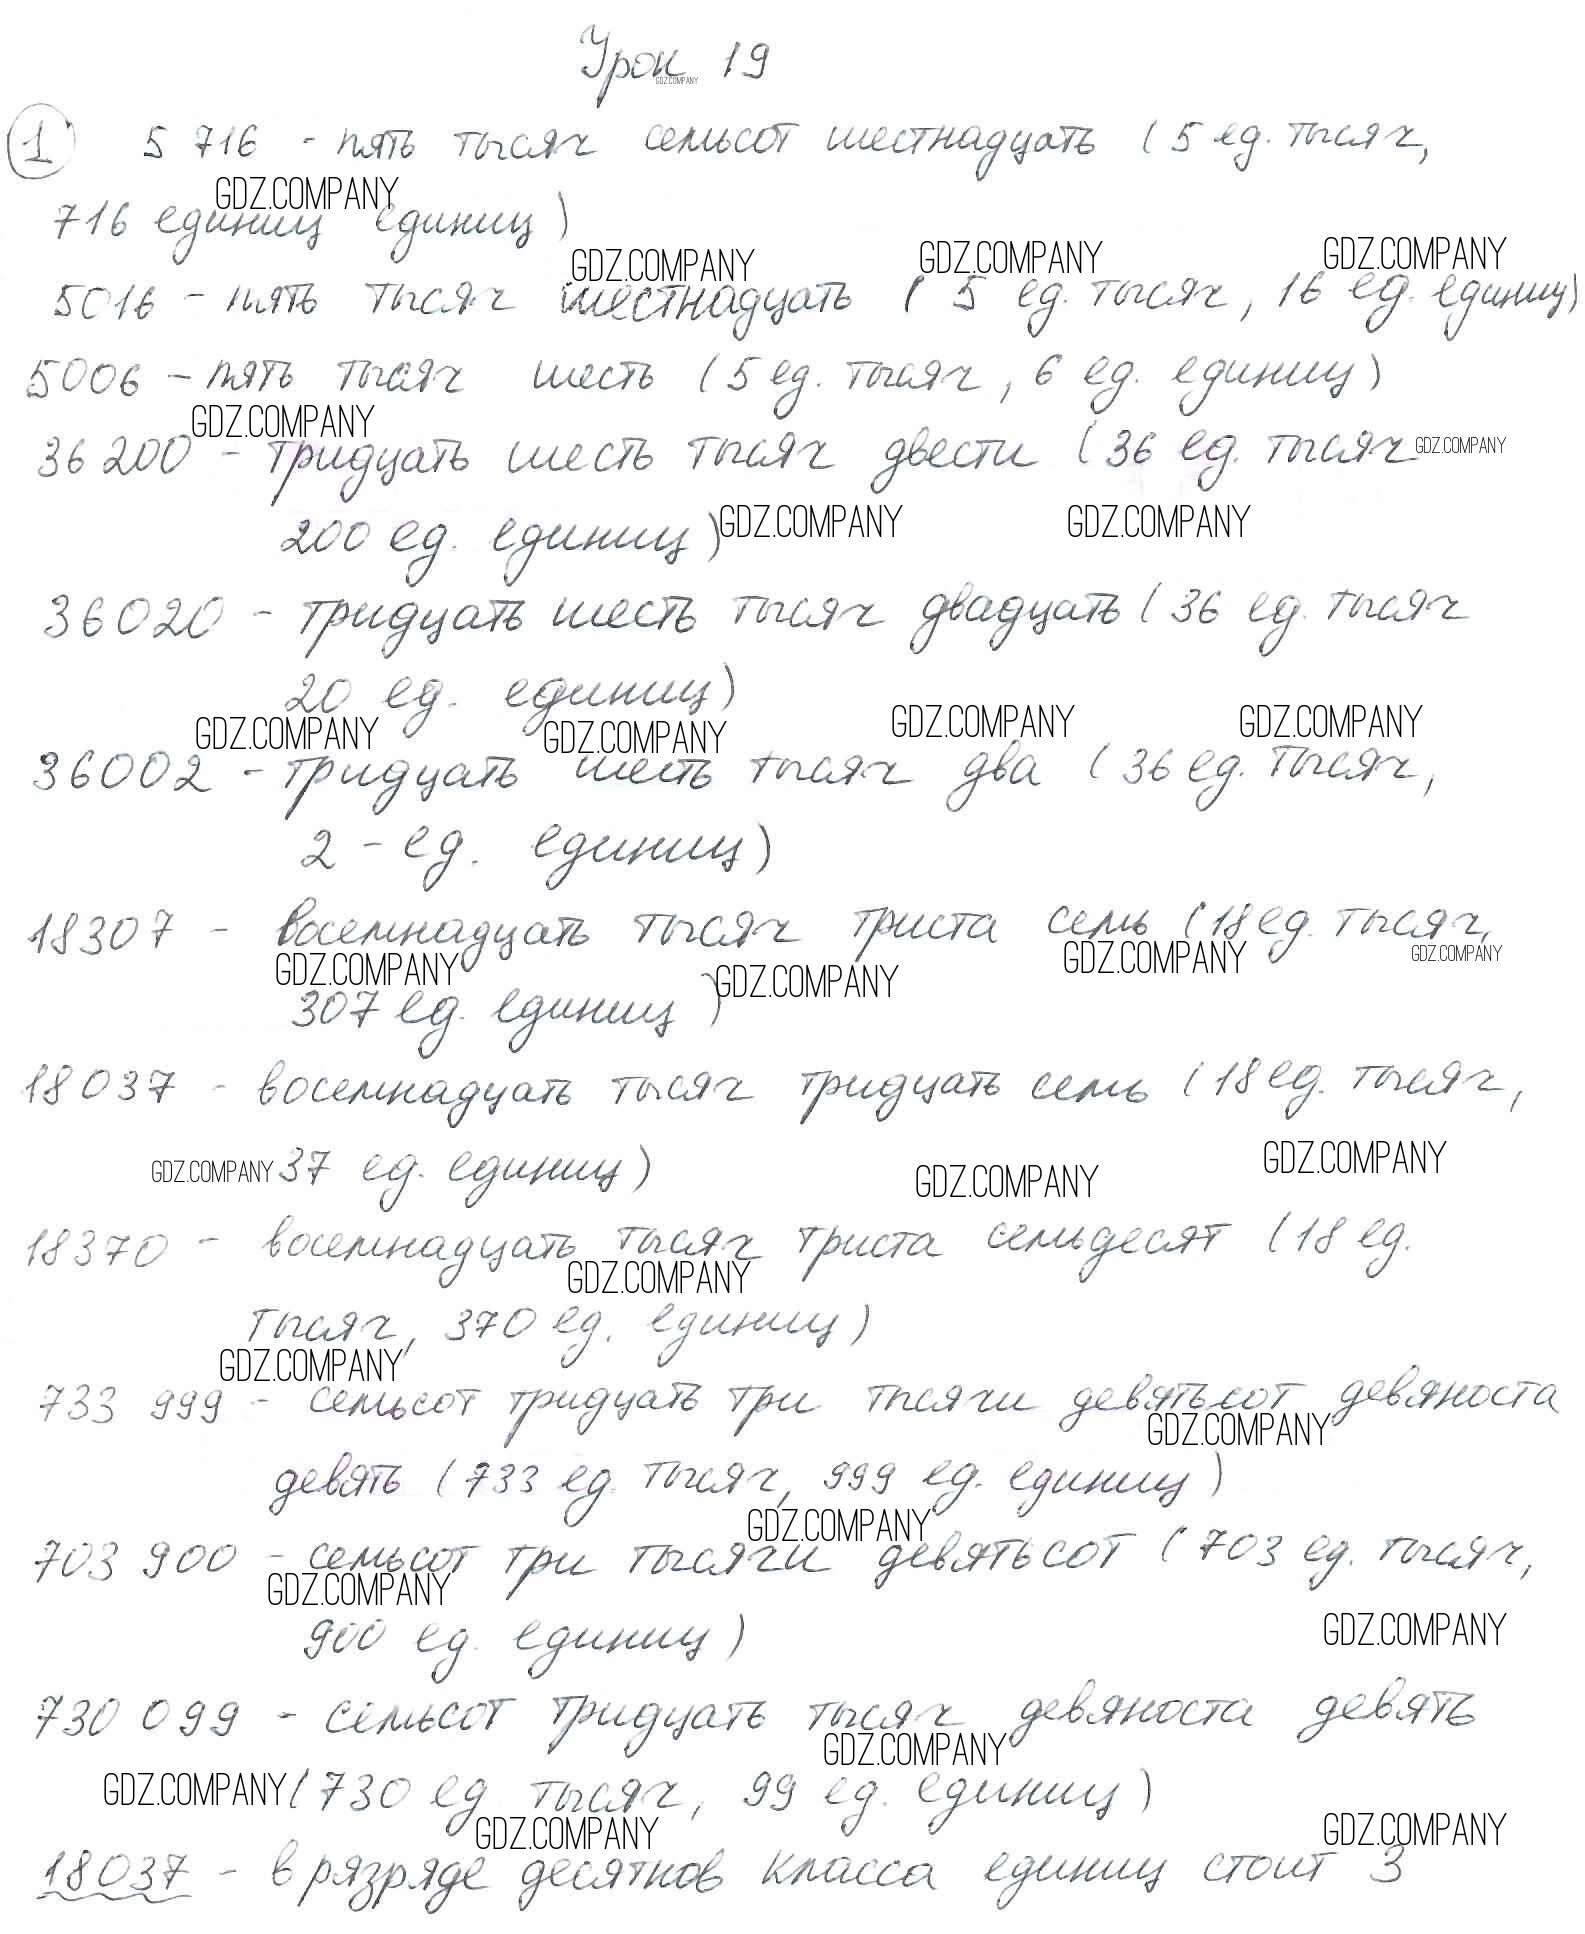 Урок 19
1 5 716 - пять тысяч семьсот шестнадцать (5 ед. тысяч,
716 единиц единиц)
5016 - пять тысяч шестнадцать (5 ед. тысяч, 16 ед. единиц)
5006 - пять тысяч шесть (5 ед. тысяч, 6 ед. единиц)
36 200 - тридцать шесть тысяч двести (36 ед. тысяч
200 ед. единиц)
36020 - тридцать шесть тысяч двадцать (36 ед. тысяч
20 ед. единиц)
36002 - тридцать шесть тысяч два (36 ед. тысяч,
2 - ед. единиц)
18307 - восемнадцать тысяч триста семь (18 ед. тысяч,
307 ед. единиц)
18037 - восемнадцать тысяч тридцать семь (18 ед. тысяч,
37 ед. единиц)
18370 - восемнадцать тысяч триста семьдесят (18 ед.
тысяч, 370 ед. единиц)
733 999 - семьсот тридцать три тысячи девятьсот девяноста
девять (733 ед. тысяч, 999 ед. единиц)
703 900 - семьсот три тысячи девятьсот (703 ед. тысяч,
900 ед. единиц)
730 099 - семьсот тридцать тысяч девяноста девять
(730 ед тысяч, 99 ед. единиц)
18037 - в рязряде десятков класса единиц стоит 3
GDZ.COMPANY